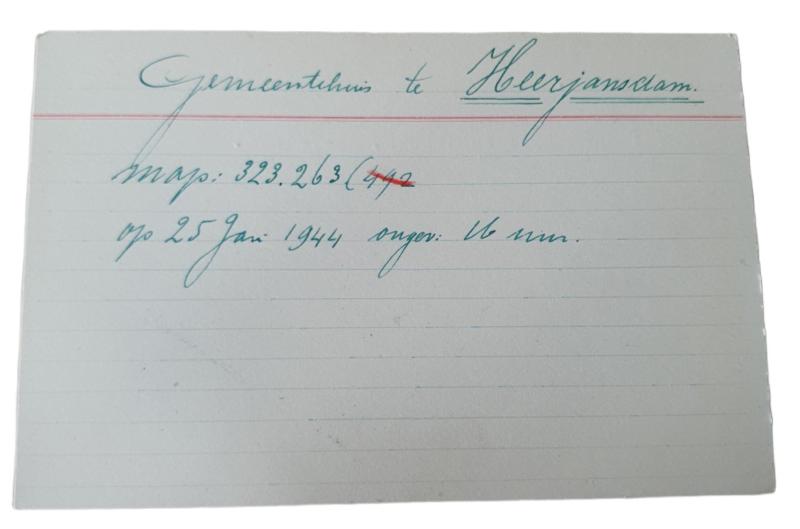 Gemeentehuis te Heerjansdam.
map: 323.263 (492
op 25 Jan 1944 ongev: 16 uur.